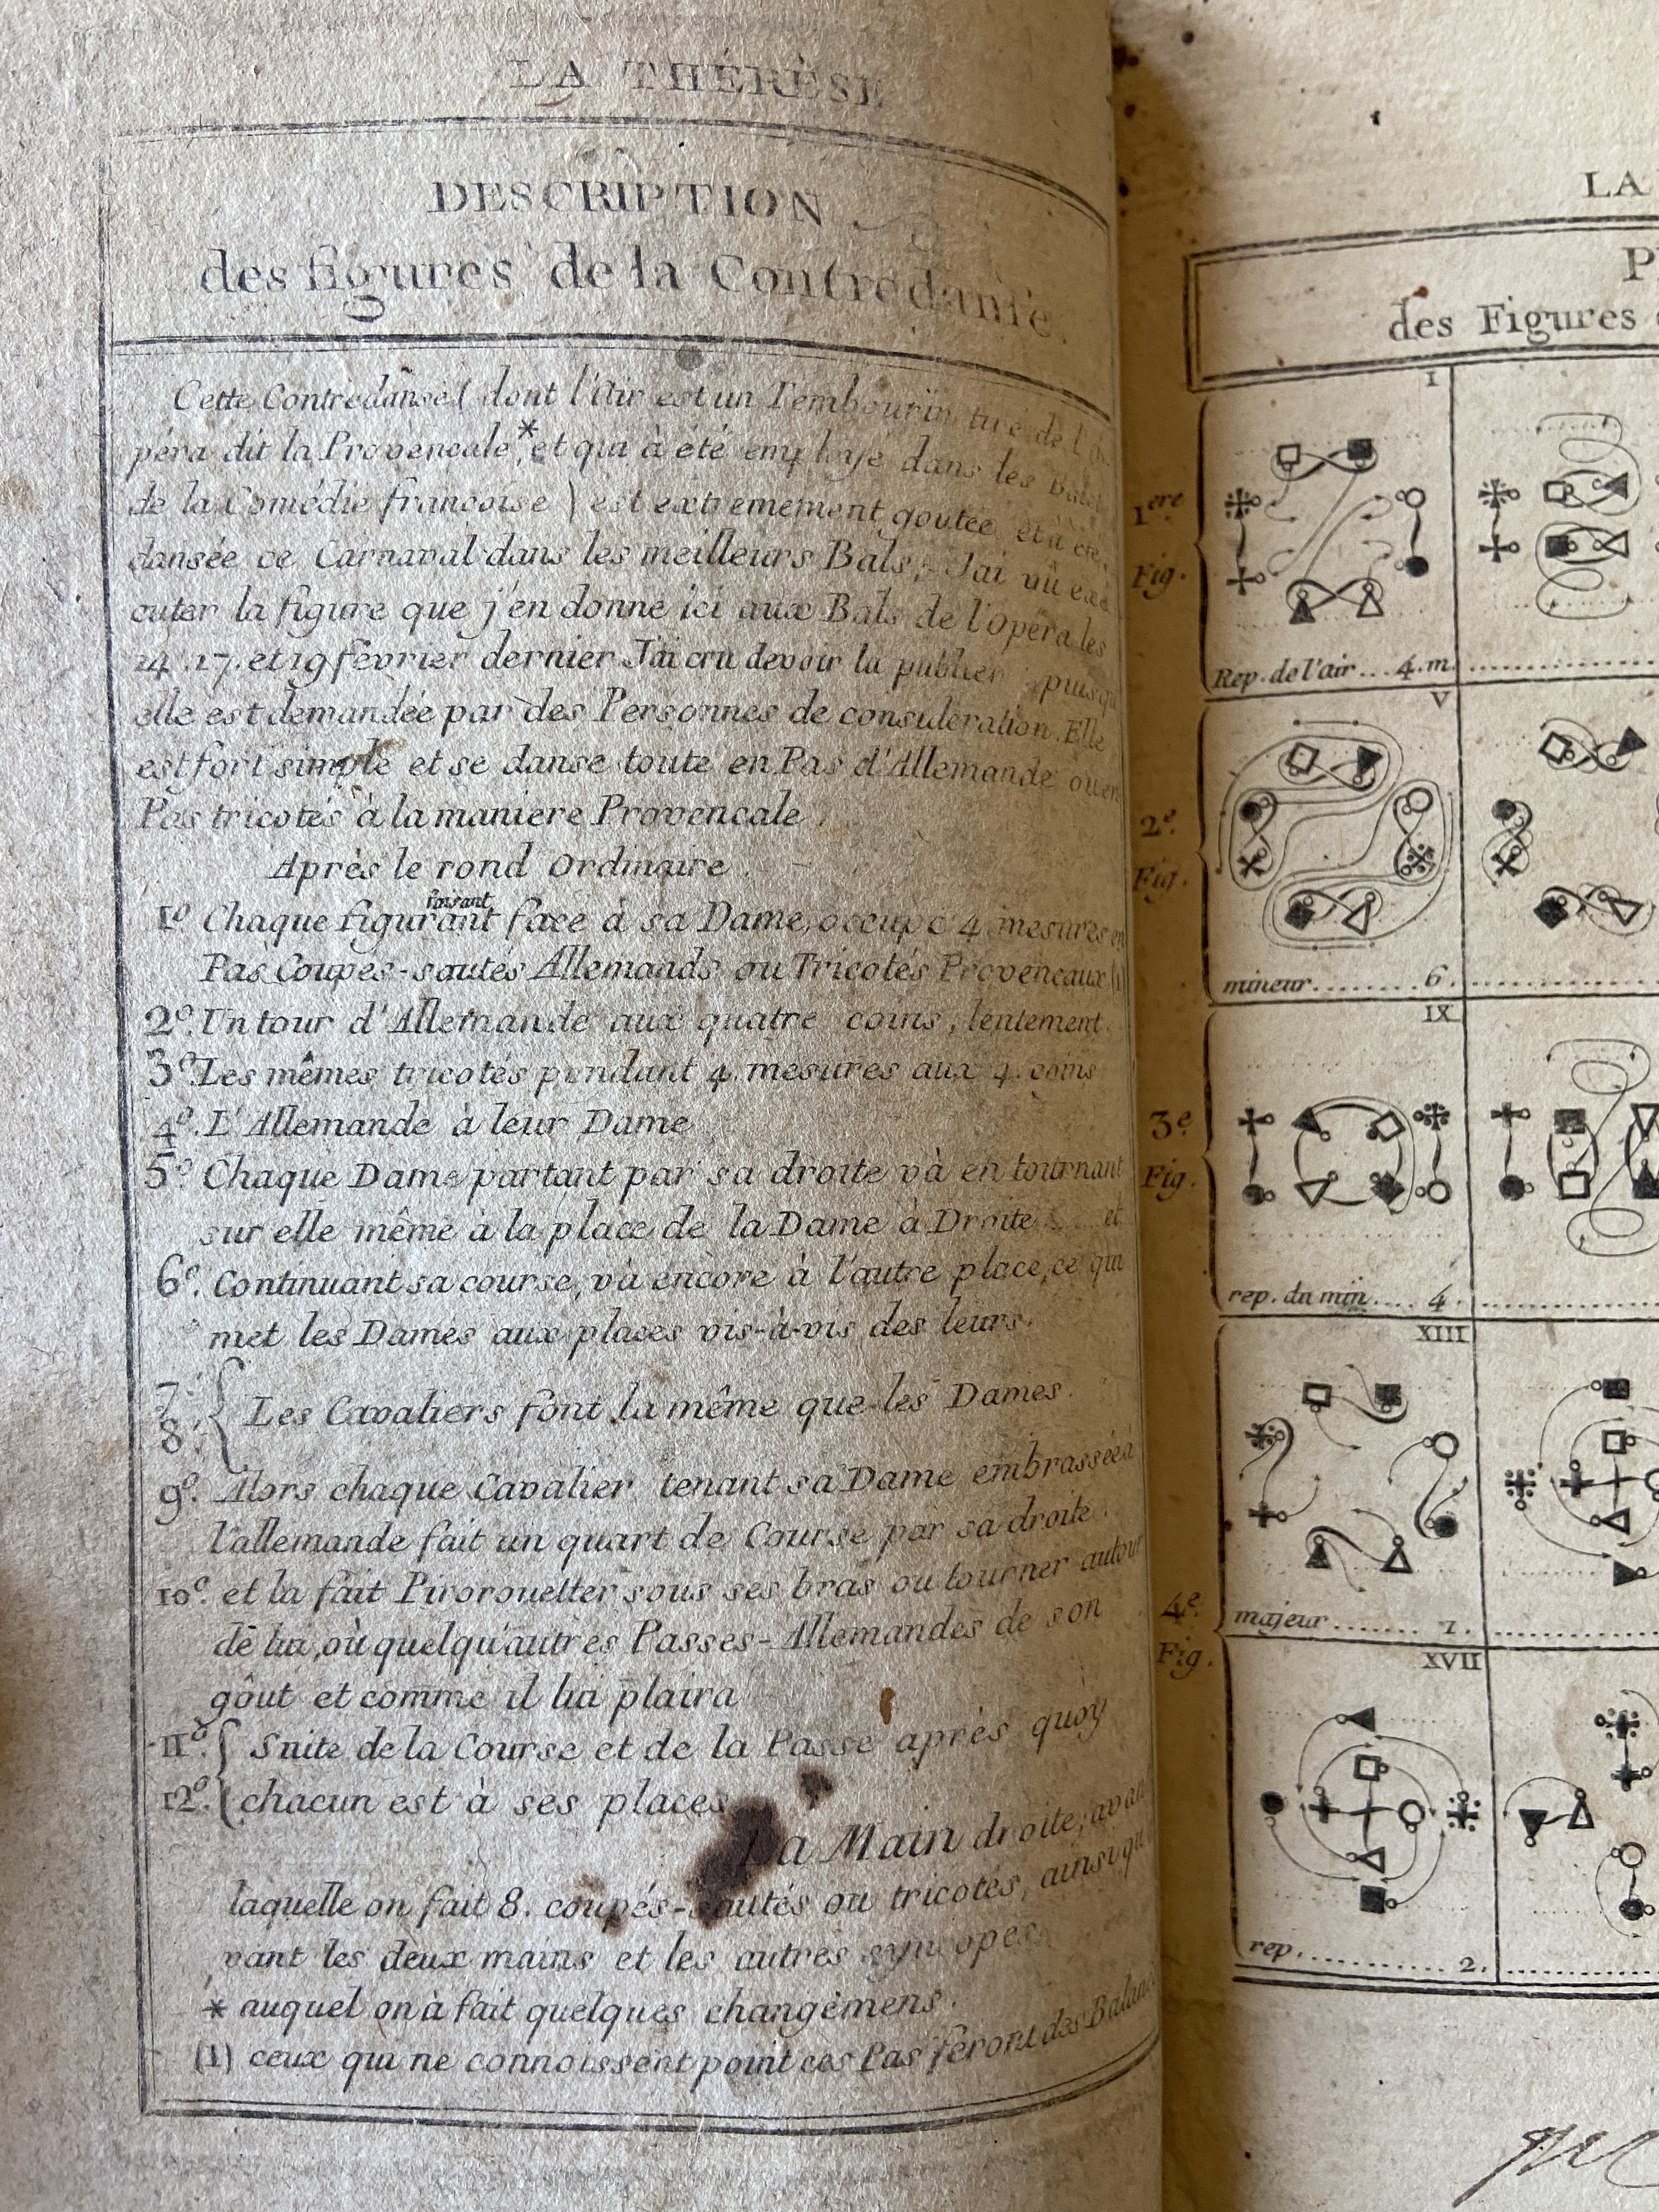 LA THÉRÈSE
DESCRIPTION
des figures de la Contredanse.
Cette Contredanse (dont l'Air est un Tembourin tiré de l'O-
péra dit la Provençale,* et qui à été employé dans les Balets
de la Comédie françoise) est extremement goutée et à été
dansée ce Carnaval dans les meilleurs Bals; Jai vû exé
cuter la figure que j'en donne ici aux Bals de l'Opera les
14. 17. et 19 fevrier dernier Jai cru devoir la publier puisqu'
elle est demandée par des Personnes de consideration. Elle
est fort simple et se danse toute en Pas d'Allemande ou en
Pas tricotés à la maniere Provencale.
Après le rond Ordinaire.
1º Chaque figurant faisant face à sa Dame, occupe 4 mesures en
Pas Coupés-sautés Allemands ou Tricotés Provencaux (1)
2º. Un tour d'Allemande aux quatre coins, lentement.
3º. Les mêmes tricotés pendant 4 mesures aux 4. coins
4º. L'Allemande à leur Dame
5º Chaque Dame partant par sa droite và en tournant
sur elle même à la place de la Dame à Droite et
6º. Continuant sa course, và encore à l'autre place, ce qui
met les Dames aux places vis-à-vis des leurs.
7.
8. { Les Cavaliers font la même que les Dames.
9º. Alors chaque Cavalier tenant sa Dame embrassée à
l'allemande fait un quart de Course par sa droite.
10º. et la fait Pirorouetter sous ses bras ou tourner autour
de lui, où quelqu'autres Passes-Allemandes de son
gôut et comme il lui plaira
11º. { Suite de la Course et de la Passe après quoy
12º. { chacun est à ses places
La Main droite; avant
laquelle on fait 8. coupés-sautés ou tricotés, ainsi qu'a
vant les deux mains et les autres syncopes
* auquel on à fait quelques changèmens.
(1) ceux qui ne connoissent point ces Pas feront des Balancés
LA
P
des Figures
I
1ere
Fig.
Rep. de l'air ... 4. m.
V
2e.
Fig.
mineur ....... 6.
IX
3e.
Fig.
rep. du min .... 4.
XIII
4e.
Fig.
majeur ....... 1.
XVII
rep. .......... 2.